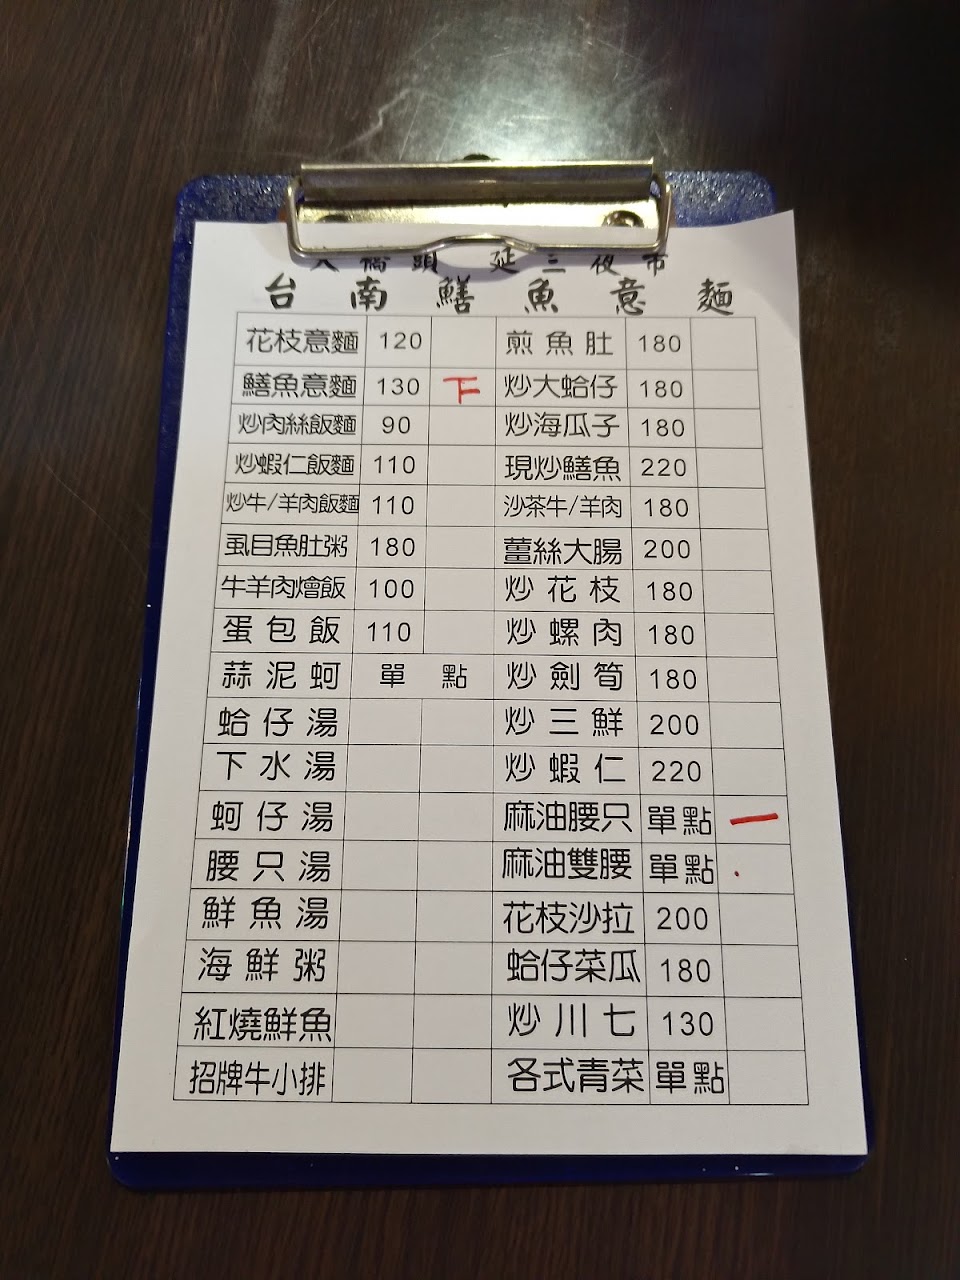 大橋頭 延三夜市
台南鱔魚意麵
花枝意麵 120 煎魚肚 180
鱔魚意麵 130 下 炒大蛤仔 180
炒肉絲飯麵 90 炒海瓜子 180
炒蝦仁飯麵 110 現炒鱔魚 220
炒牛/羊肉飯麵 110 沙茶牛/羊肉 180
虱目魚肚粥 180 薑絲大腸 200
牛羊肉燴飯 100 炒花枝 180
蛋包飯 110 炒螺肉 180
蒜泥蚵 單點 炒劍筍 180
蛤仔湯 炒三鮮 200
下水湯 炒蝦仁 220
蚵仔湯 麻油腰只 單點 一
腰只湯 麻油雙腰 單點
鮮魚湯 花枝沙拉 200
海鮮粥 蛤仔菜瓜 180
紅燒鮮魚 炒川七 130
招牌牛小排 各式青菜 單點